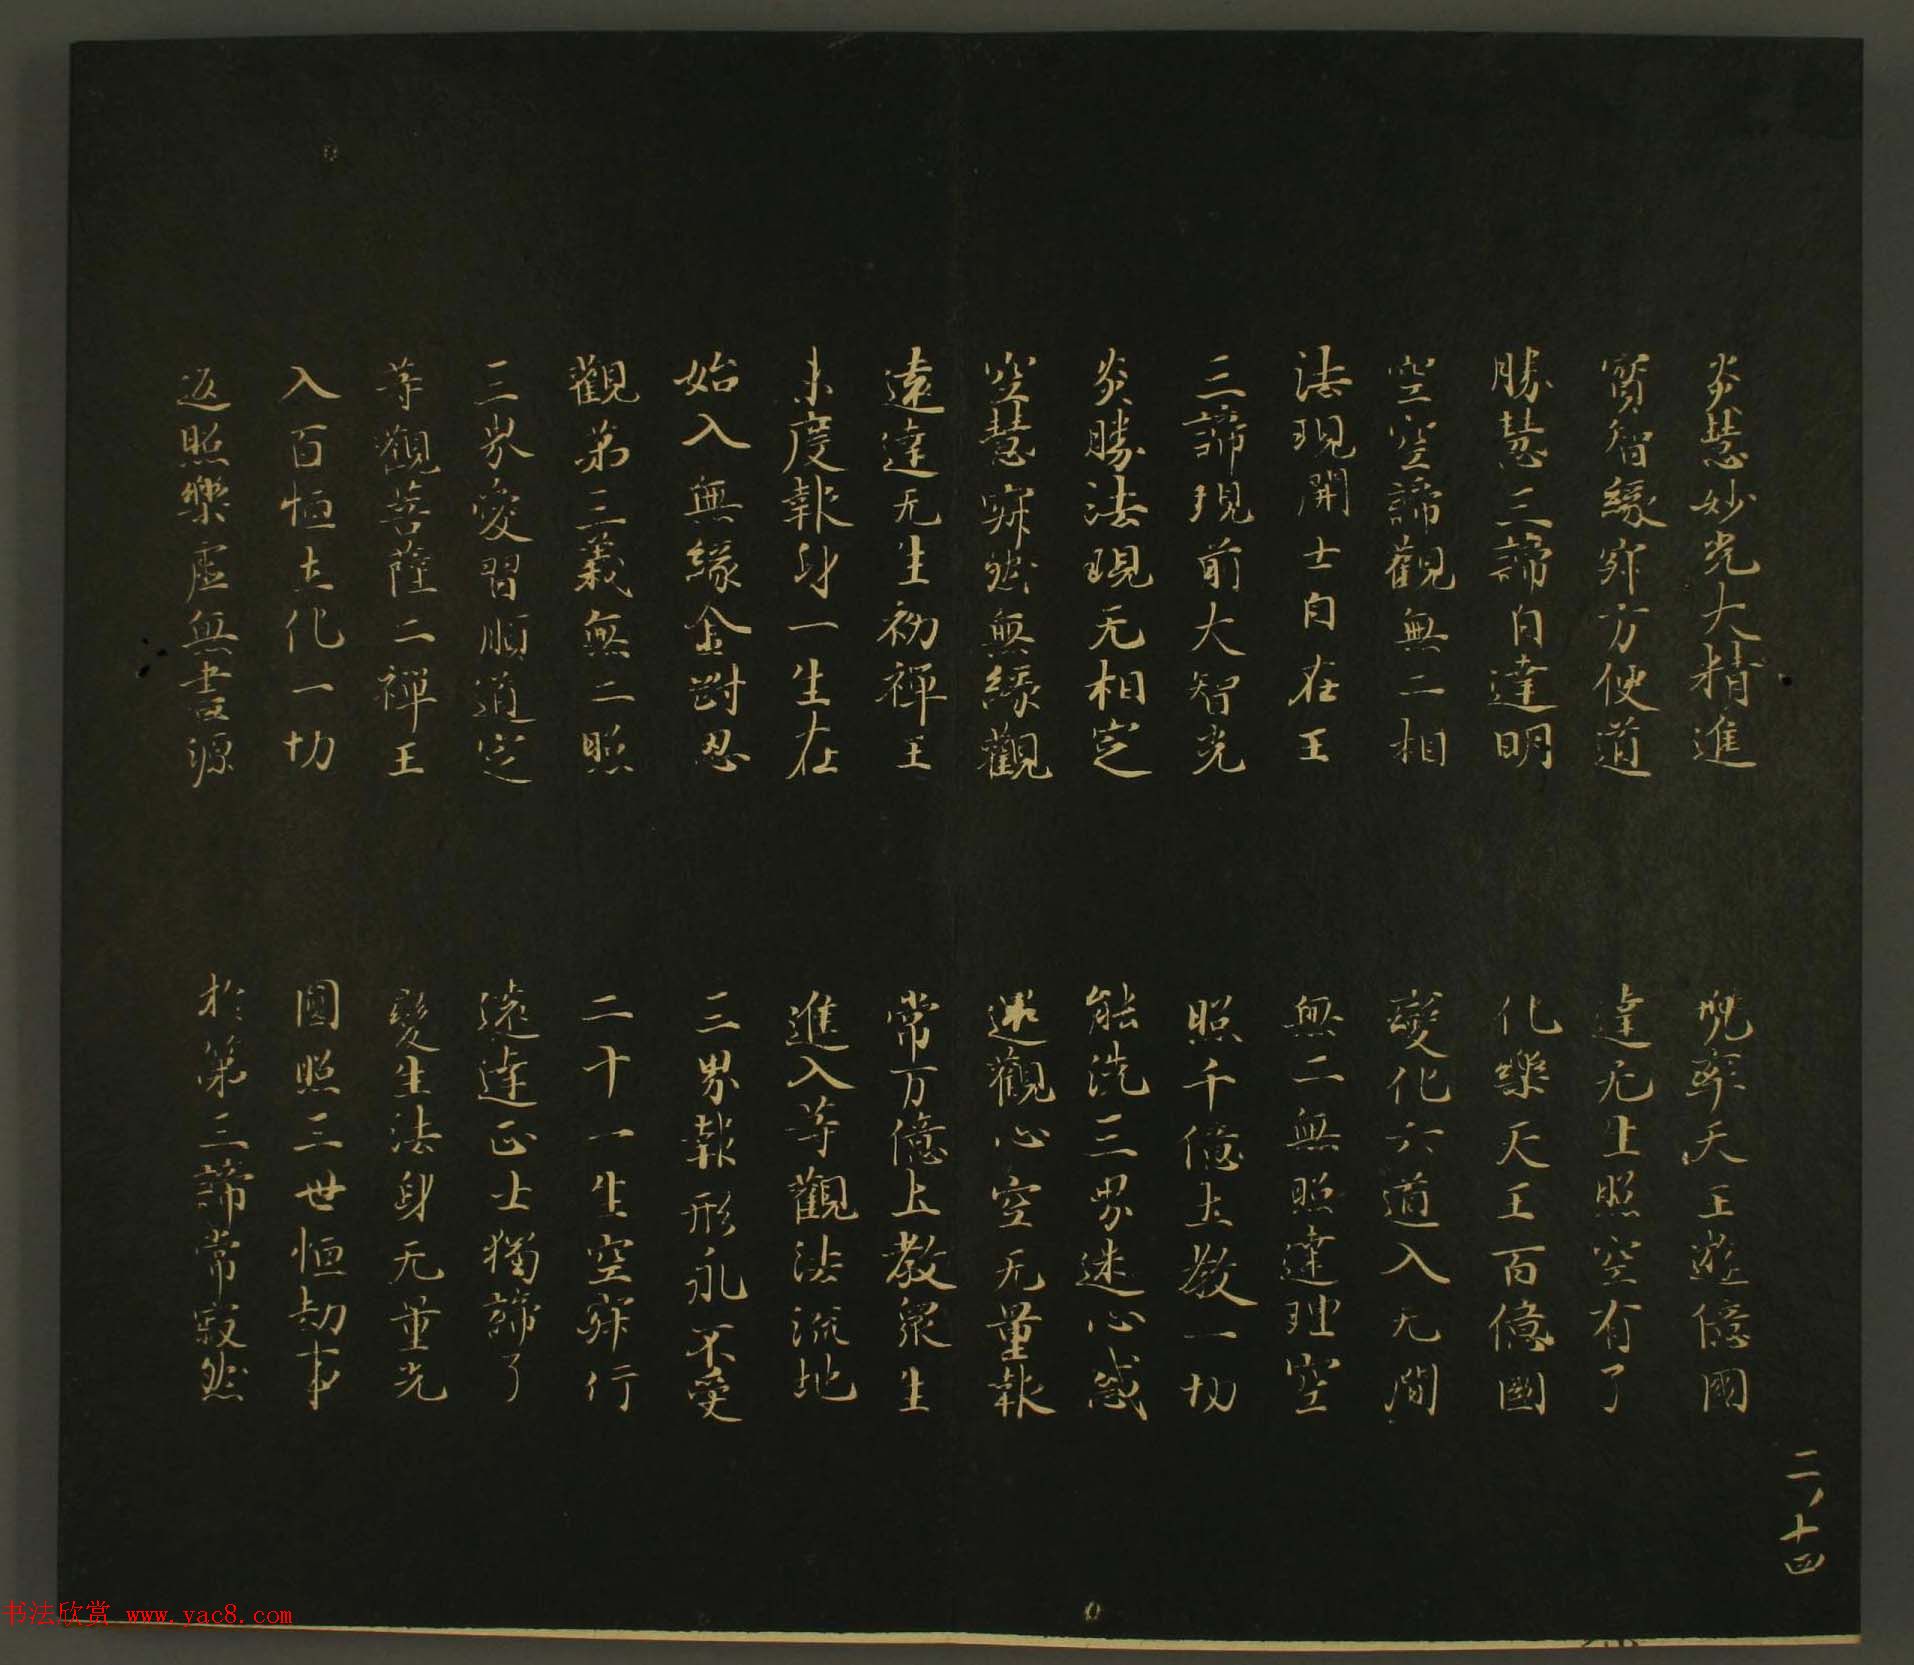 炎慧妙光大精進　兜率天王遊億國
寶智緣寂方便道　達无生照空有了
勝慧三諦自達明　化樂天王百億國
空空諦觀無二相　變化六道入无間
法現開士自在王　無二無照達理空
三諦現前大智光　照千億土教一切
炎勝法現无相定　能洗三界迷心惑
空慧寂然無緣觀　還觀心空无量報
遠達无生初禪王　常万億土教眾生
未度報身一生在　進入等觀法流地
始入無緣金剛忍　三界報形永不受
觀第三義無二照　二十一生空寂行
三界愛習順道定　遠達正士獨諦了
等觀菩薩二禪王　變生法身无量光
入百恒土化一切　圓照三世恒劫事
返照樂虛無盡源　於第三諦常寂然
二ノ十四
书法欣赏 www.yac8.com